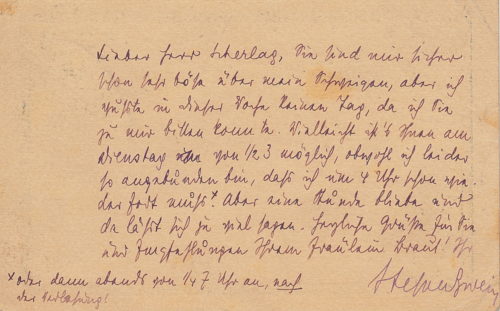 Lieber Herr Scherlag, Sie sind mir sicher
schon sehr böse über mein Schweigen, aber ich
wusste in dieser Woche keinen Tag, da ich Sie
zu mir bitten konnte. Vielleicht ist's Ihnen am
Dienstag von ½ 3 möglich, obwohl ich leider
so angebunden bin, dass ich um 4 Uhr schon wie-
der fort muss.* Aber eine Stunde bliebe und
da lässt sich ja viel sagen. Herzliche Grüße für Sie
und Empfehlungen Ihrem Fräulein Braut! Ihr
Stefan Zweig
* oder dann abends von ¼ 7 Uhr an, nach
der Vorlesung!